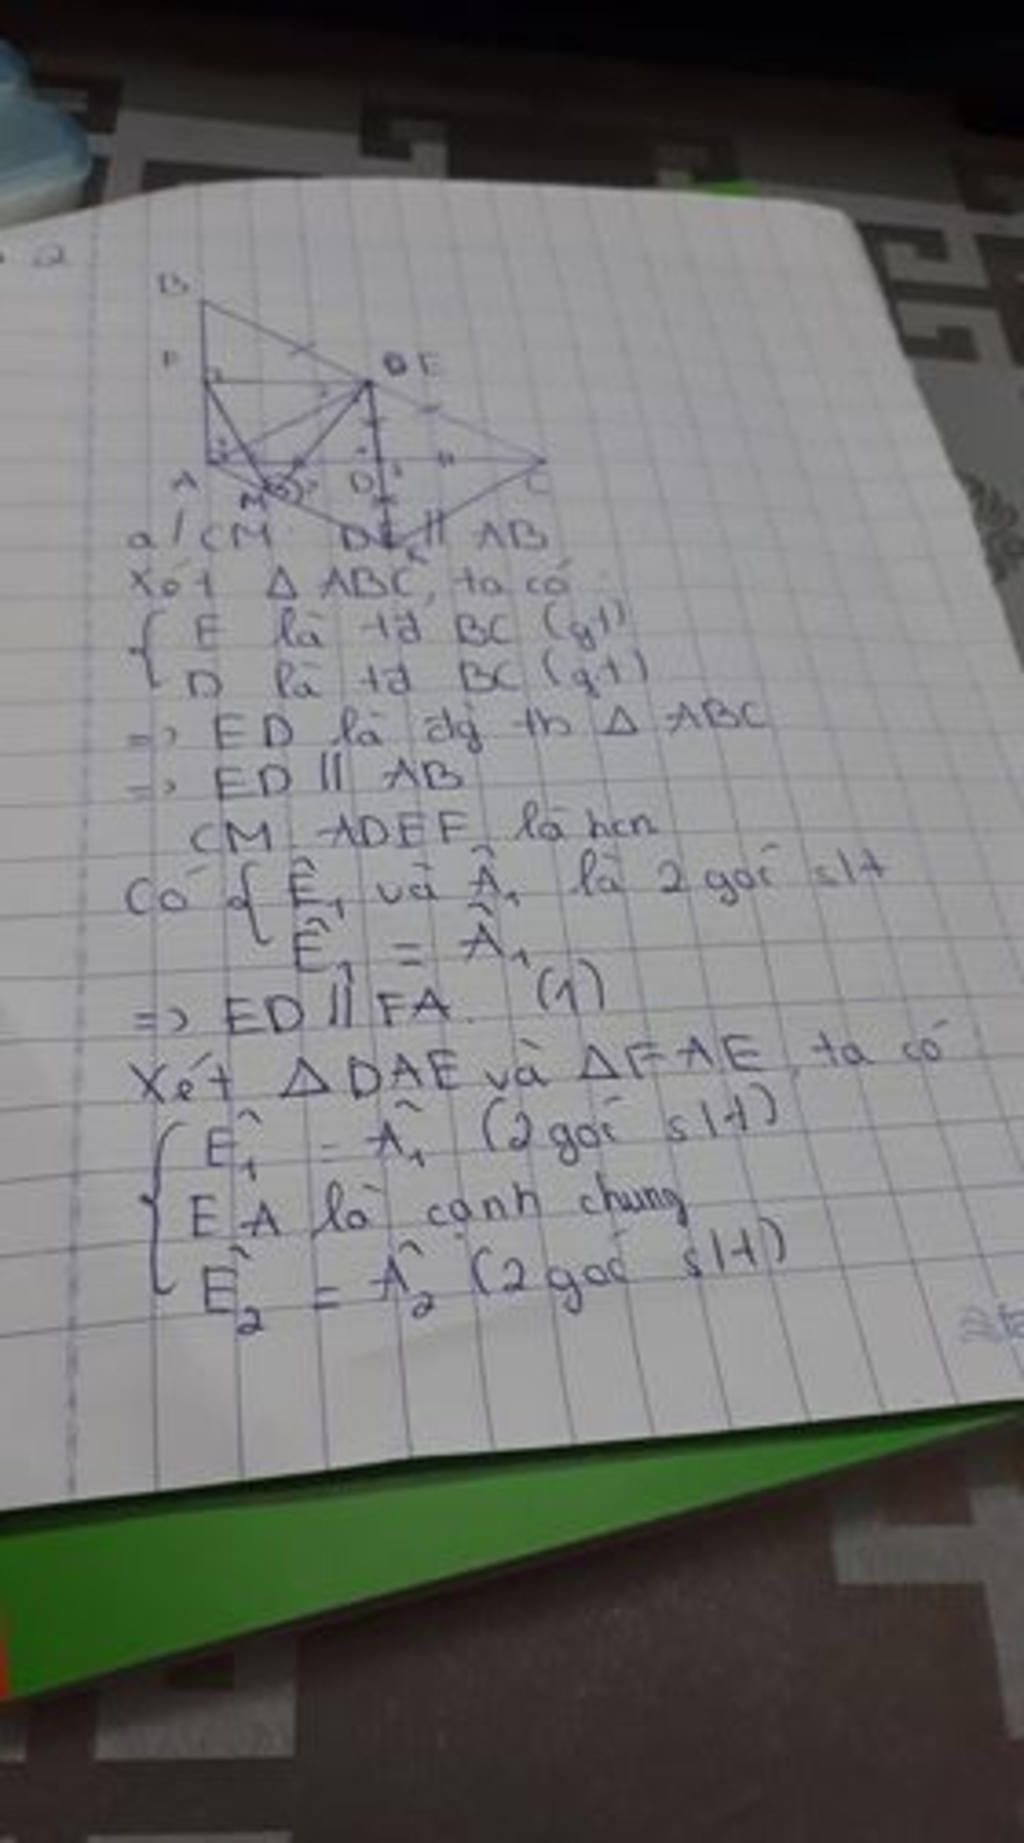 B
F
E
A
M
D
C
a/ CM DE // AB
Xét Δ ABC, ta có
{ E là tđ BC (gt)
D là tđ BC (gt)
=> ED là đg tb Δ ABC
=> ED // AB
CM ADEF là hcn
Có { Ê₁ và Â₁ là 2 góc slt
Ê₁ = Â₁
=> ED // FA (1)
Xét Δ DAE và Δ FAE, ta có
{ Ê₁ = Â₁ (2 góc slt)
EA là cạnh chung
Ê₂ = Â₂ (2 góc slt)